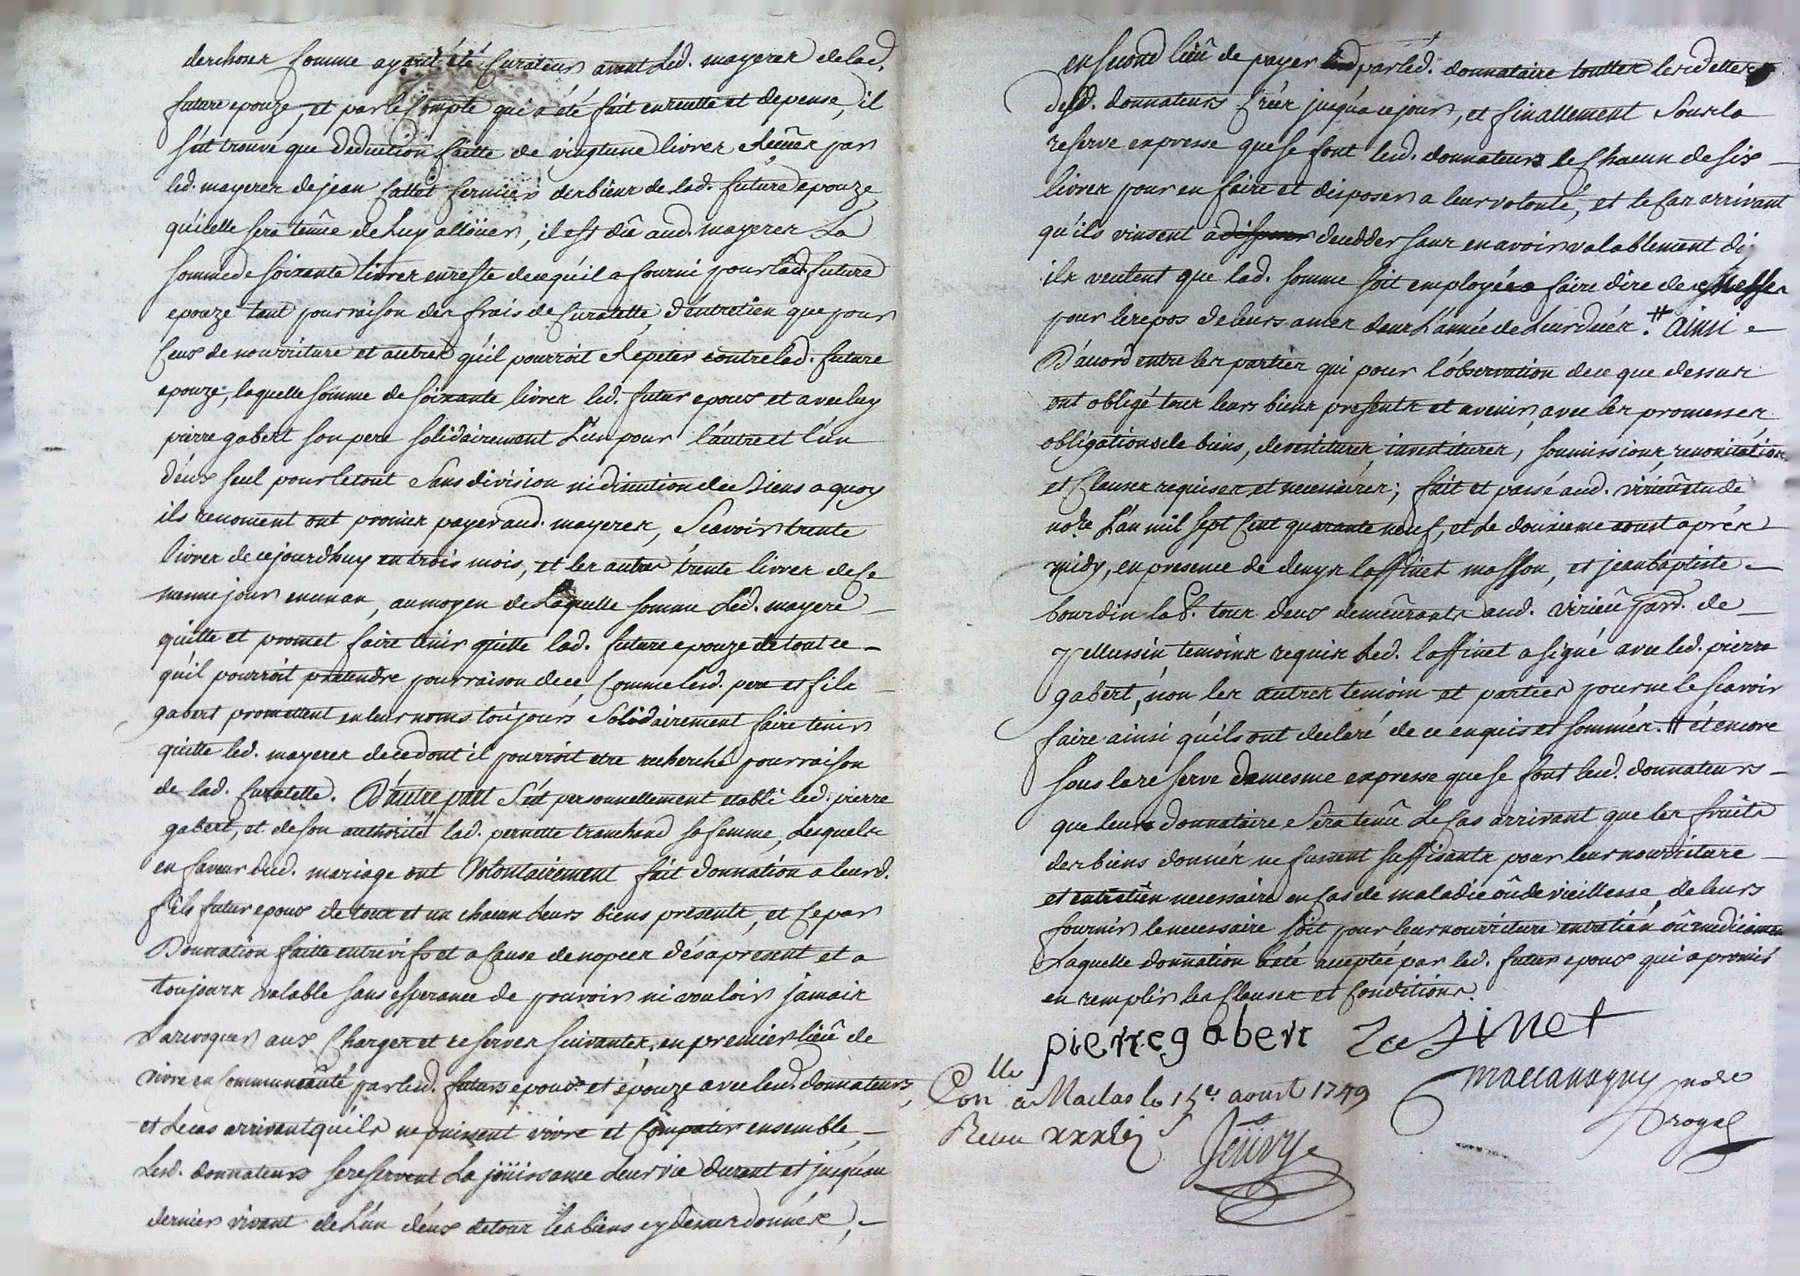 des choses comme ayant été Curateur avant Led. mayerer de lad.
future epouze, et par le Compte qui a été fait en recette et depense, il
s'est trouvé que deduction faitte de vingtune livres
led. mayerer de jean fermier des biens de lad. future epouze
qu'elle sera tenüe de Luy alloüer, il est dû aud. mayerer La
somme de soixante livres en reste de ce qu'il a fourni pour lad. future
epouze tant pour raison des frais de Curatelle, d'entretien que pour
Ceux de nourriture et autres qu'il pourroit Repeter contre lad. future
epouze; laquelle somme de soixante livres led. futur epoux et avec luy
pierre gabert son pere solidairement L'un pour l'autre et l'un
d'eux seul pour le tout sans division ni de biens a quoy
ils renoncent ont promis payer aud. mayerer, Scavoir trente
livres de cejourdhuy en trois mois, et les autres trente livres de Ce
meme jour en un an, au moyen de Laquelle somme Led. mayere
quitte et promet faire tenir quitte lad. future epouze de tout ce
qu'il pourroit pretendre pour raison de ce, Comme lesd. pere et fils
gabert promettent en leurs noms toujours Solidairement faire tenir
quitte led. mayerer de ce dont il pourroit etre recherché pour raison
de lad. Curatelle. D'autre part s'est personnellement etabli led. pierre
gabert, et de son authorité lad. pernette tranchand sa femme, Lesquels
en faveur dud. mariage ont Volontairement fait donnation a leurd.
fils futur epoux de tous et un chacun leurs biens presents, et Ce par
Donnation faitte entre vifs et a Cause de nopces dés a present et a
toujours valable sans esperance de pouvoir ni vouloir jamais
La revoquer aux Charges et reserves suivantes, en premier lieu de
vivre en Communauté par lesd. futurs epoux et épouze avec lesd. donnateurs,
et le cas arrivant qu'ils ne puissent vivre et Compatir ensemble,
Lesd. donnateurs se reservent La joüissance Leur vie Durant et jusqu'au
dernier vivant de L'un d'eux de tous les biens cy dessus donnés,
en second lieu de payer par led. donnataire touttes les dettes
desd. donnateurs Créés jusqu'a ce jour, et finallement Sous la
reserve expresse que se font lesd. donnateurs de Chacun de six
livres pour en faire et disposer a leur volonté, et le Cas arrivant
qu'ils vinsent a decedder sans en avoir valablement di
ils veulent que lad. somme soit employée a faire dire des Messes
pour le repos de leurs ames dans L'année de Leur decés. # Ainsi
D'accord entre les parties qui pour l'observation de ce que dessus
ont obligé tous leurs biens presents et avenir, avec les promesses,
obligations de biens, devestitures, investitures, soumissions, renonciations
et Clauses requises et necessaires; fait et passé aud. virieu étude
nore. L'an mil sept Cent quarante neuf, et Le douzieme aoust aprés
midy, en presence de denys laffinet masson, et jean baptiste
bourdin tous deux demeurants aud. virieu de
pellussin temoins requis Led. laffinet a signé avec led. pierre
gabert, non les autres temoin et parties pour ne le scavoir
faire ainsi qu'ils ont declaré de ce enquis et sommés. # et encore
sous la reserve de mesme expresse que se font lesd. donnateurs
que leurs donnataire sera tenu Le Cas arrivant que les fruits
des biens donnés ne fussent suffisants pour leur nourriture
et entretien necessaire en Cas de maladie ou de vieillesse, de leurs
fournir le necessaire soit pour leur nourriture entretien ou medicamens
Laquelle donnation a été acceptée par led. futur epoux qui a promis
en remplir les Clauses et Conditions.
pierre gabert Lafinet
Conlle a Maclas le 15e aoust 1749
nore
royal